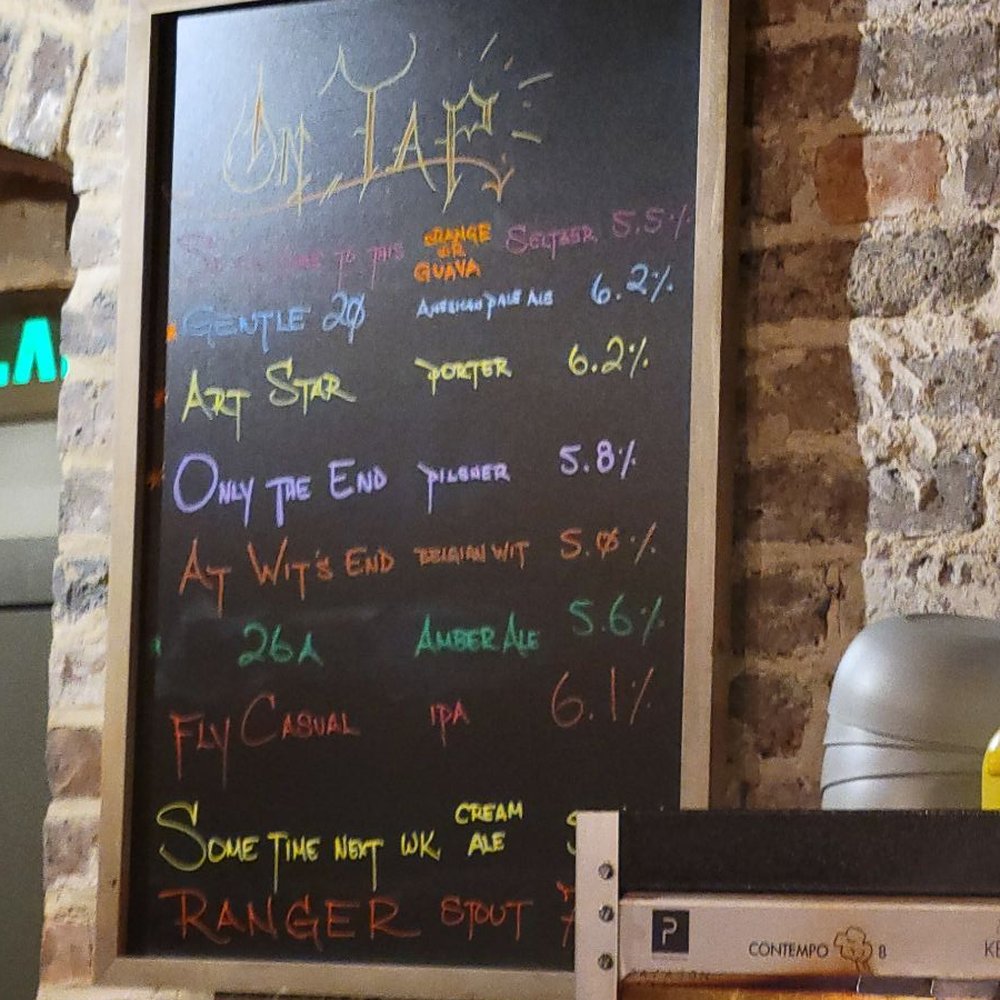 On Tap
to this Orange or Guava Seltzer 5.5%
Gentle 20 American Pale Ale 6.2%
Art Star Porter 6.2%
Only The End Pilsner 5.8%
At Wit's End Belgian Wit 5.0%
26A Amber Ale 5.6%
Fly Casual IPA 6.1%
Some Time Next Wk Cream Ale
Ranger Stout
P CONTEMPO 8